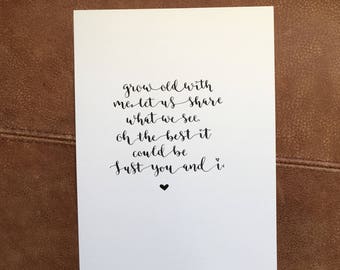 grow old with
me, let us share
what we see.
oh the best it
could be
Just you and i.